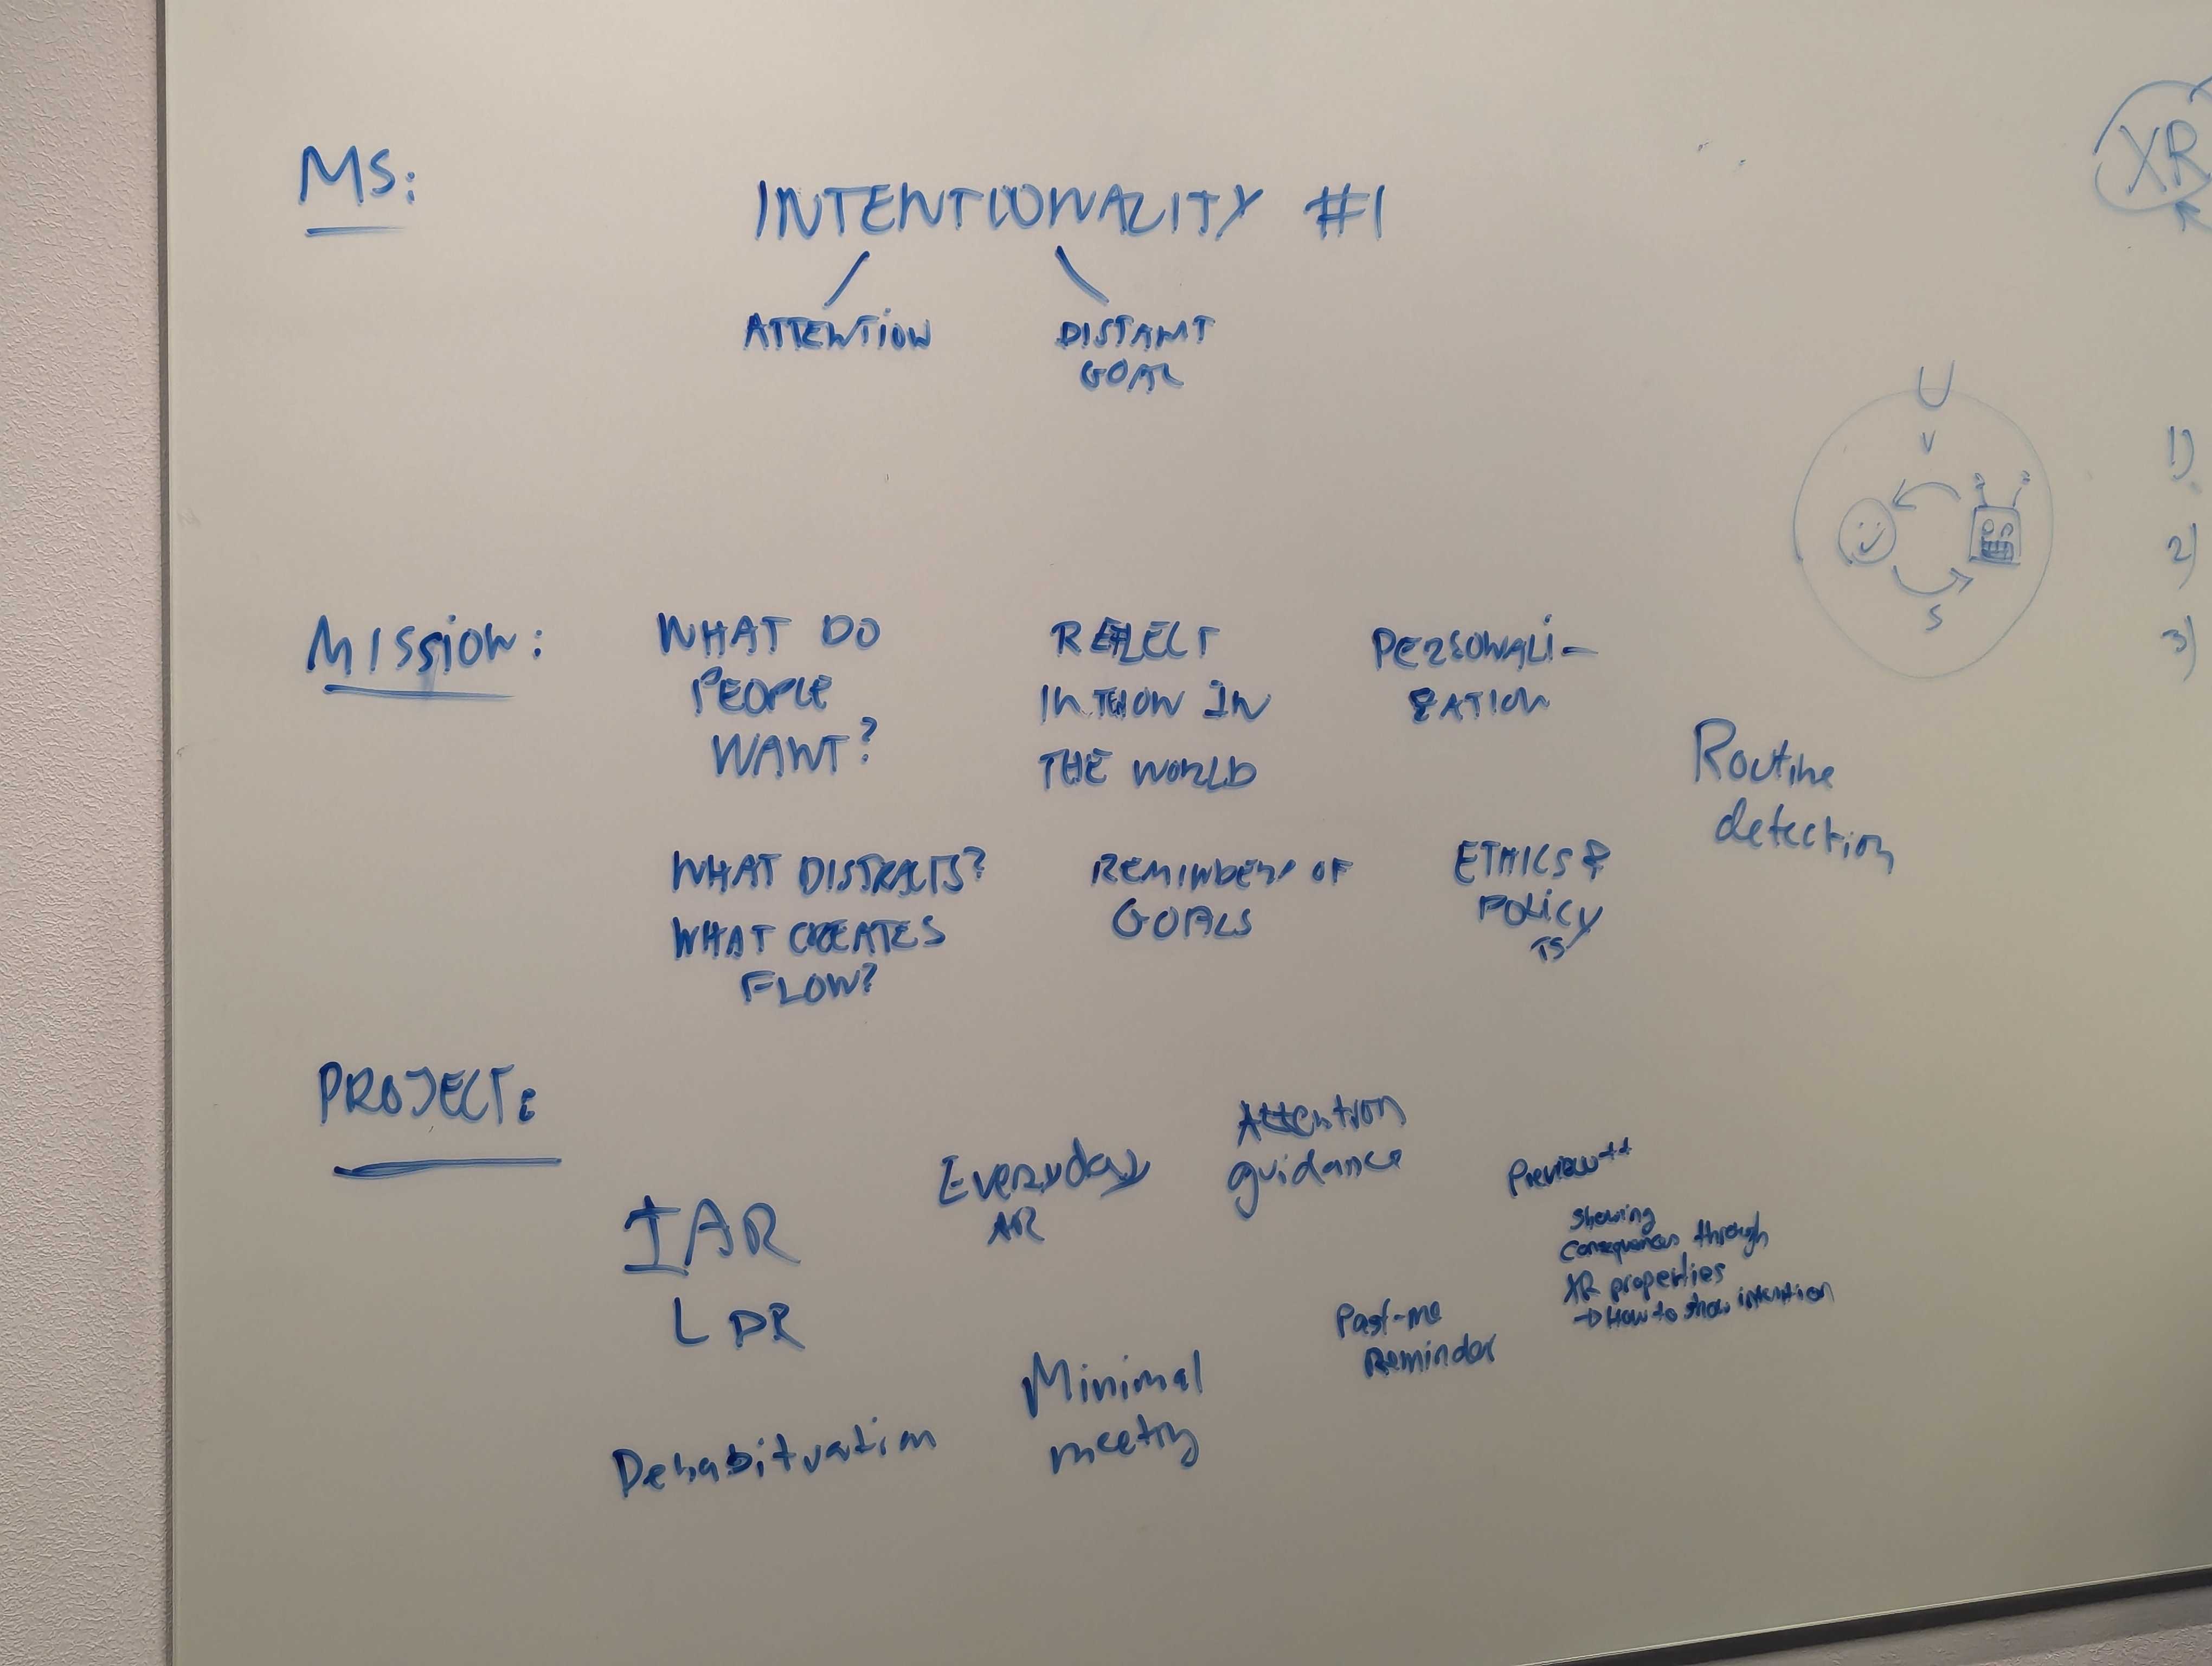 MS:
INTENTIONALITY #1
ATTENTION
DISTANT
GOAL
XR
U
V
S
1)
2)
3)
MISSION:
WHAT DO
PEOPLE
WANT?
REFLECT
INTION IN
THE WORLD
PERSONALI-
ZATION
Routine
detection
WHAT DISTRACTS?
WHAT CREATES
FLOW?
REMINDERS OF
GOALS
ETHICS &
POLICY
TS
PROJECT:
IAR
L DR
Everyday
AR
Attention
guidance
Preview++
Showing
Consequences through
XR properties
→ How to show intention
Past-me
Reminder
Minimal
meeting
Dehabituation